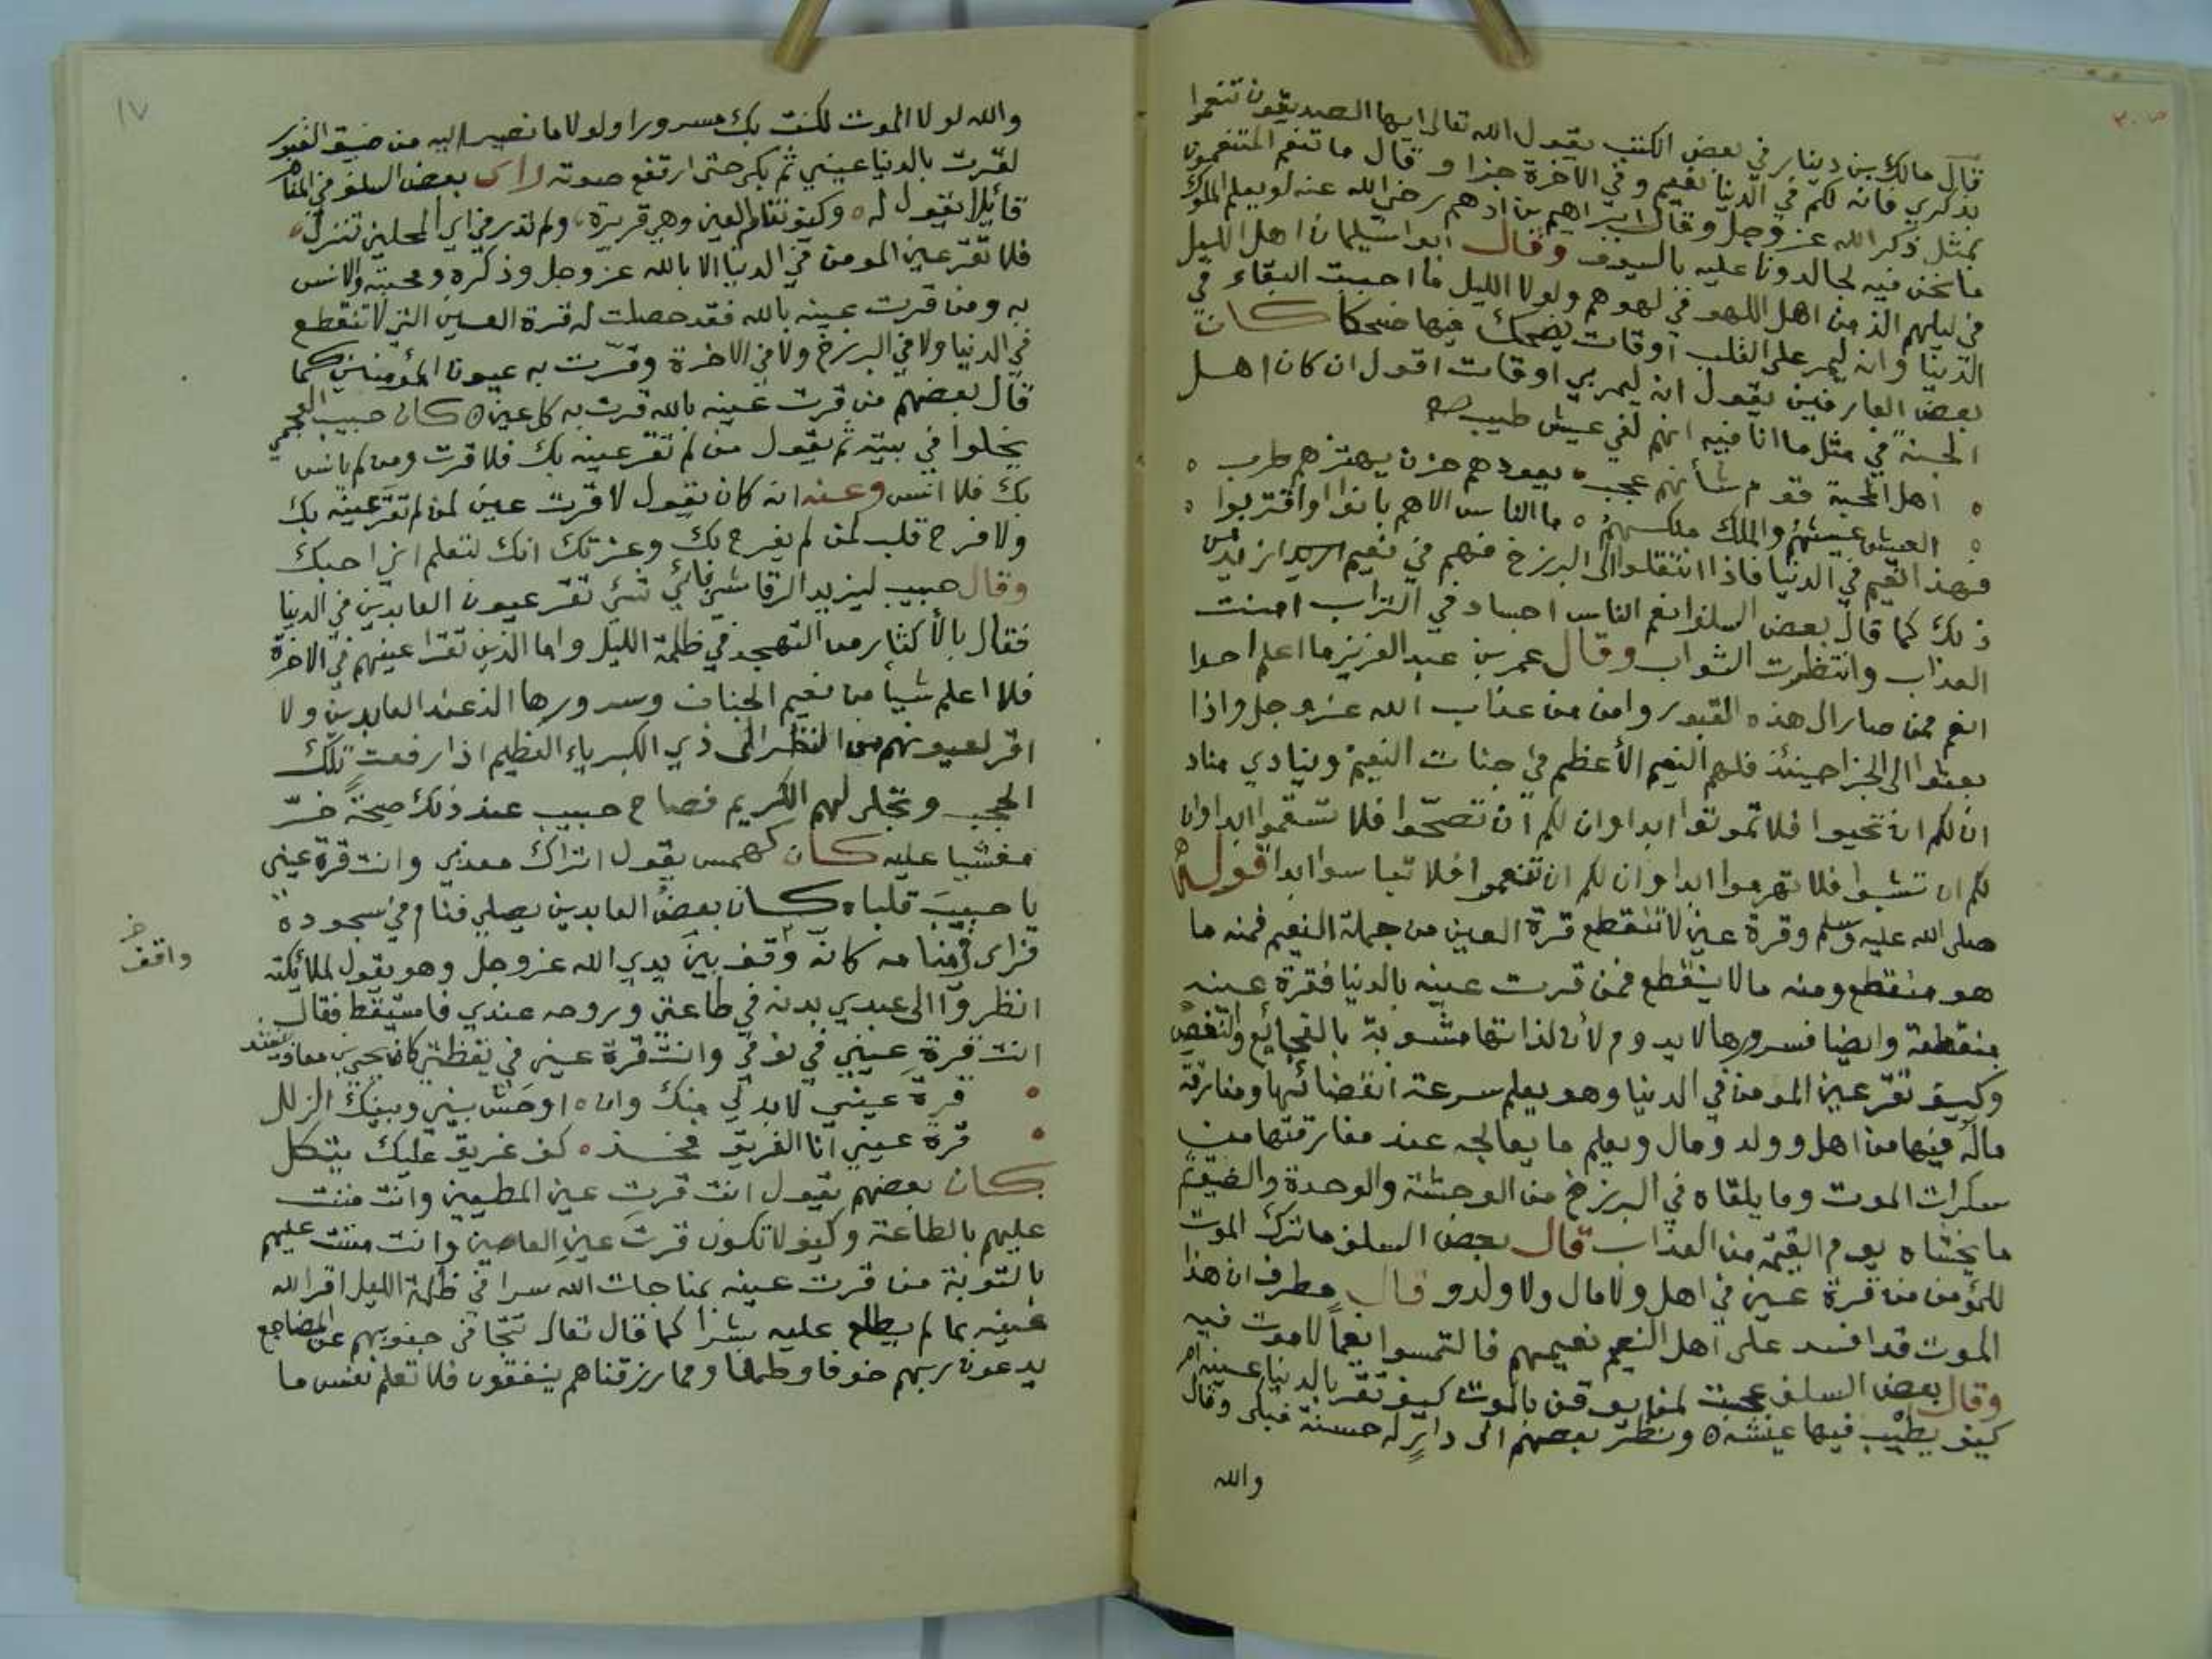 قال مالك بن دينار في بعض الكتب يقول الله تعالى ايها الصديقون تنعموا
بذكري فانه لكم في الدنيا نعيم وفي الآخرة جزا وقال ما تنعم المتنعمون
بمثل ذكر الله عز وجل وقال ابراهيم بن ادهم رضي الله عنه لو يعلم الملوك
ما نحن فيه لجالدونا عليه بالسيوف وقال ابو اسليمان اهل الليل
في ليلهم الذ من اهل اللهو في لهوهم ولولا الليل ما احببت البقاء في
الدنيا وانه ليمر على القلب اوقات يضحك فيها ضحكا كان
بعض العارفين يقول انه ليمر بي اوقات اقول ان كان اهل
الجنة في مثل ما انا فيه انهم لفي عيش طيب
اهل المحبة قوم شأنهم عجب يعودهم حزن يهتزهم طرب
العيش عيشهم والملك ملكهم ما الناس الا هم بانوا او اقتربوا
فهذا النعيم في الدنيا فاذا انتقلوا الى البرزخ فهم في نعيم ازيد من
ذلك كما قال بعض السلف انعم الناس اجساد في التراب امنت
العذاب وانتظرت الثواب وقال عمر بن عبد العزيز ما اعلم احدا
انعم ممن صار الى هذه القبور وامن من عذاب الله عز وجل واذا
بعثوا الى الجزا حينئذ فلهم النعيم الأعظم في جنات النعيم وينادي مناد
ان لكم ان تحيوا فلا تموتوا ابدا وان لكم ان تصحوا فلا تسقموا ابدا وان
لكم ان تشبوا فلا تهرموا ابدا وان لكم ان تنعموا فلا تباسوا ابدا قوله
صلى الله عليه وسلم وقرة عين لا تنقطع قرة العين من جملة النعيم فمنه ما
هو منقطع ومنه ما لا ينقطع فمن قرت عينه بالدنيا فقرة عينه
منقطعة وايضا فسرورها لا يدوم لأن لذاتها مشوبة بالفجائع والتنغيص
وكيف تقر عين المومن في الدنيا وهو يعلم سرعة انقضائها ومفارقة
ماله فيها من اهل وولد ومال ويعلم ما يعالجه عند مفارقتها من
سكرات الموت وما يلقاه في البرزخ من الوحشة والوحدة والضيق ثم
ما يخشاه يوم القيمة من العذاب قال بعض السلف ما ترك الموت
للمؤمن من قرة عين في اهل ولا مال ولا ولد وقال مطرف ان هذا
الموت قد افسد على اهل النعيم نعيمهم فالتمسوا نعيما لا موت فيه
وقال بعض السلف عجبت لمن يوقن بالموت كيف تقر بالدنيا عينه ام
كيف يطيب فيها عيشه ونظر بعضهم الى دار له حسنة فبكى وقال
والله
١٧
والله لولا الموت لكنت بك مسرورا ولولا ما نصير اليه من ضيق القبور
لقرت بالدنيا عيني ثم بكى حتى ارتفع صوته راى بعض السلف في المنام
قائلا يقول له وكيف تنام العين وهي قريرة ولم تدر في اي المحلين تنزل
فلا تقر عين المومن في الدنيا الا بالله عز وجل وذكره ومحبته والانس
به ومن قرت عينه بالله فقد حصلت له قرة العين التي لا تنقطع
في الدنيا ولا في البرزخ ولا في الاخرة وقرت به عيون المؤمنين كما
قال بعضهم من قرت عينه بالله قرت به كل عين كان حبيب العجمي
يخلوا في بيته ثم يقول من لم تقر عينه بك فلا قرت ومن لم يانس
بك فلا انس وعنه انه كان يقول لا قرت عين لمن لم تقر عينه بك
ولا فرح قلب لمن لم يفرح بك وعزتك انك لتعلم اني احبك
وقال حبيب ليزيد الرقاشي باي شئ تقر عيون العابدين في الدنيا
فقال بالأكثار من التهجد في ظلمة الليل واما الذين تقر اعينهم في الاخرة
فلا اعلم شيأ من نعيم الجنان وسرورها الذ عند العابدين ولا
اقر لعيونهم من النظر الى ذي الكبرياء العظيم اذا رفعت تلك
الحجب وتجلى لهم الكريم فصاح حبيب عند ذلك صيحة خرّ
مغشيا عليه كان كهمس يقول اتراك معذبي وانت قرة عيني
يا حبيب قلباه كان بعض العابدين يصلي فنام في سجوده
فراى في منامه كانه وقف بين يدي الله عز وجل وهو يقول لملائكته
واقف خ
انظروا الى عبدي بدنه في طاعتي وروحه عندي فاستيقظ فقال
انت قرة عيني في نومي وانت قرة عيني في يقظتي كان يحيى بن معاذ ينشد
قرة عيني لا بد لي منك وان اوحش بيني وبينك الزلل
قرة عيني انا الغريق فخذ كف غريق عليك يتكل
كان بعضهم يقول انت قرت عين المطيعين وانت مننت
عليهم بالطاعة وكيف لا تكون قرت عين العاصين وانت مننت عليهم
بالتوبة من قرت عينه بمناجات الله سرا في ظلمة الليل اقر الله
عينه بما لم يطلع عليه بشرا كما قال تعالى تتجافى جنوبهم عن المضاجع
يدعون ربهم خوفا وطمعا ومما رزقناهم ينفقون فلا تعلم نفس ما